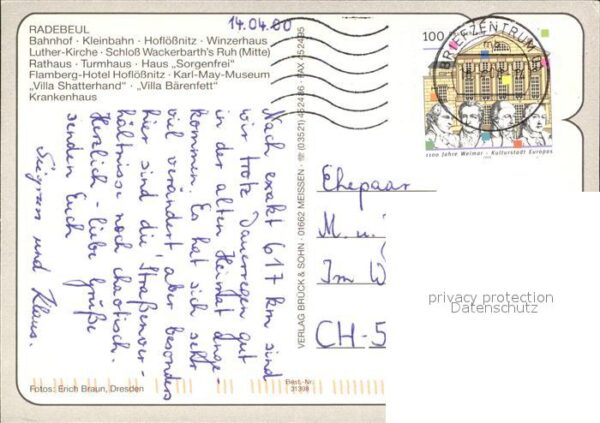 RADEBEUL
Bahnhof · Kleinbahn · Hoflößnitz · Winzerhaus
Luther-Kirche · Schloß Wackerbarth's Ruh (Mitte)
Rathaus · Turmhaus · Haus „Sorgenfrei"
Flamberg-Hotel Hoflößnitz · Karl-May-Museum
„Villa Shatterhand" · „Villa Bärenfett"
Krankenhaus
14.04.00
Nach exakt 617 km sind
wir trotz Dauerregen gut
in der alten Heimat ange-
kommen. Es hat sich sehr
viel verändert aber besonders
hier sind die Straßenver-
hältnisse noch chaotisch.
Herzlich - liebe Grüße
senden Euch
Sigrun und Klaus.
Fotos: Erich Braun, Dresden
Best.-Nr.
31398
VERLAG BRÜCK & SOHN · 01662 MEISSEN · ☏ (03521) 452486 · FAX 452495
BRIEFZENTRUM 0
100
1100 Jahre Weimar - Kulturstadt Europas
Ehepaar
M. u.
Im W
CH-5
privacy protection
Datenschutz